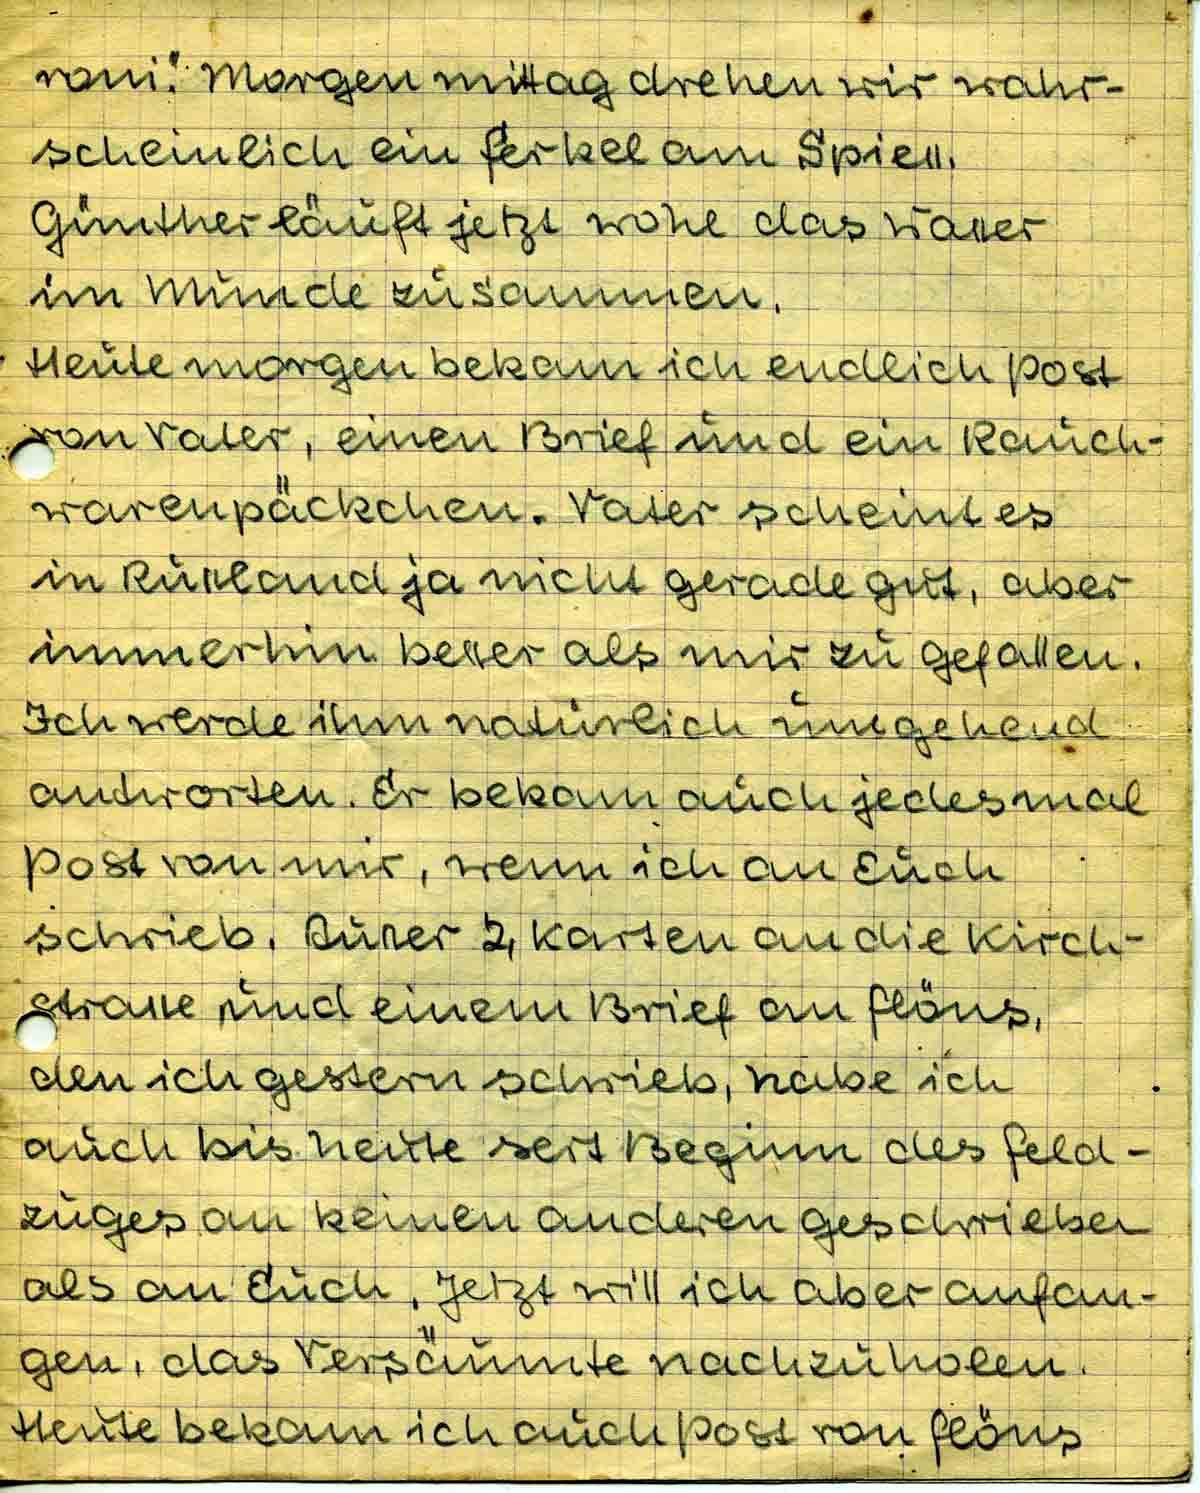 roni." Morgen mittag drehen wir wahr-
scheinlich ein Ferkel am Spiess.
Günther läuft jetzt wohl das Wasser
im Munde zusammen.
Heute morgen bekam ich endlich Post
von Vater, einen Brief und ein Rauch-
warenpäckchen. Vater scheint es
in Russland ja nicht gerade gut, aber
immerhin besser als mir zu gefallen.
Ich werde ihm natürlich umgehend
antworten. Er bekam auch jedesmal
Post von mir, wenn ich an Euch
schrieb. Ausser 2 Karten an die Kirch-
strasse und einem Brief an Flöns,
den ich gestern schrieb, habe ich
auch bis heute seit Beginn des Feld-
zuges an keinen anderen geschrieben
als an Euch. Jetzt will ich aber anfan-
gen, das Versäumte nachzuholen.
Heute bekam ich auch Post von Flöns